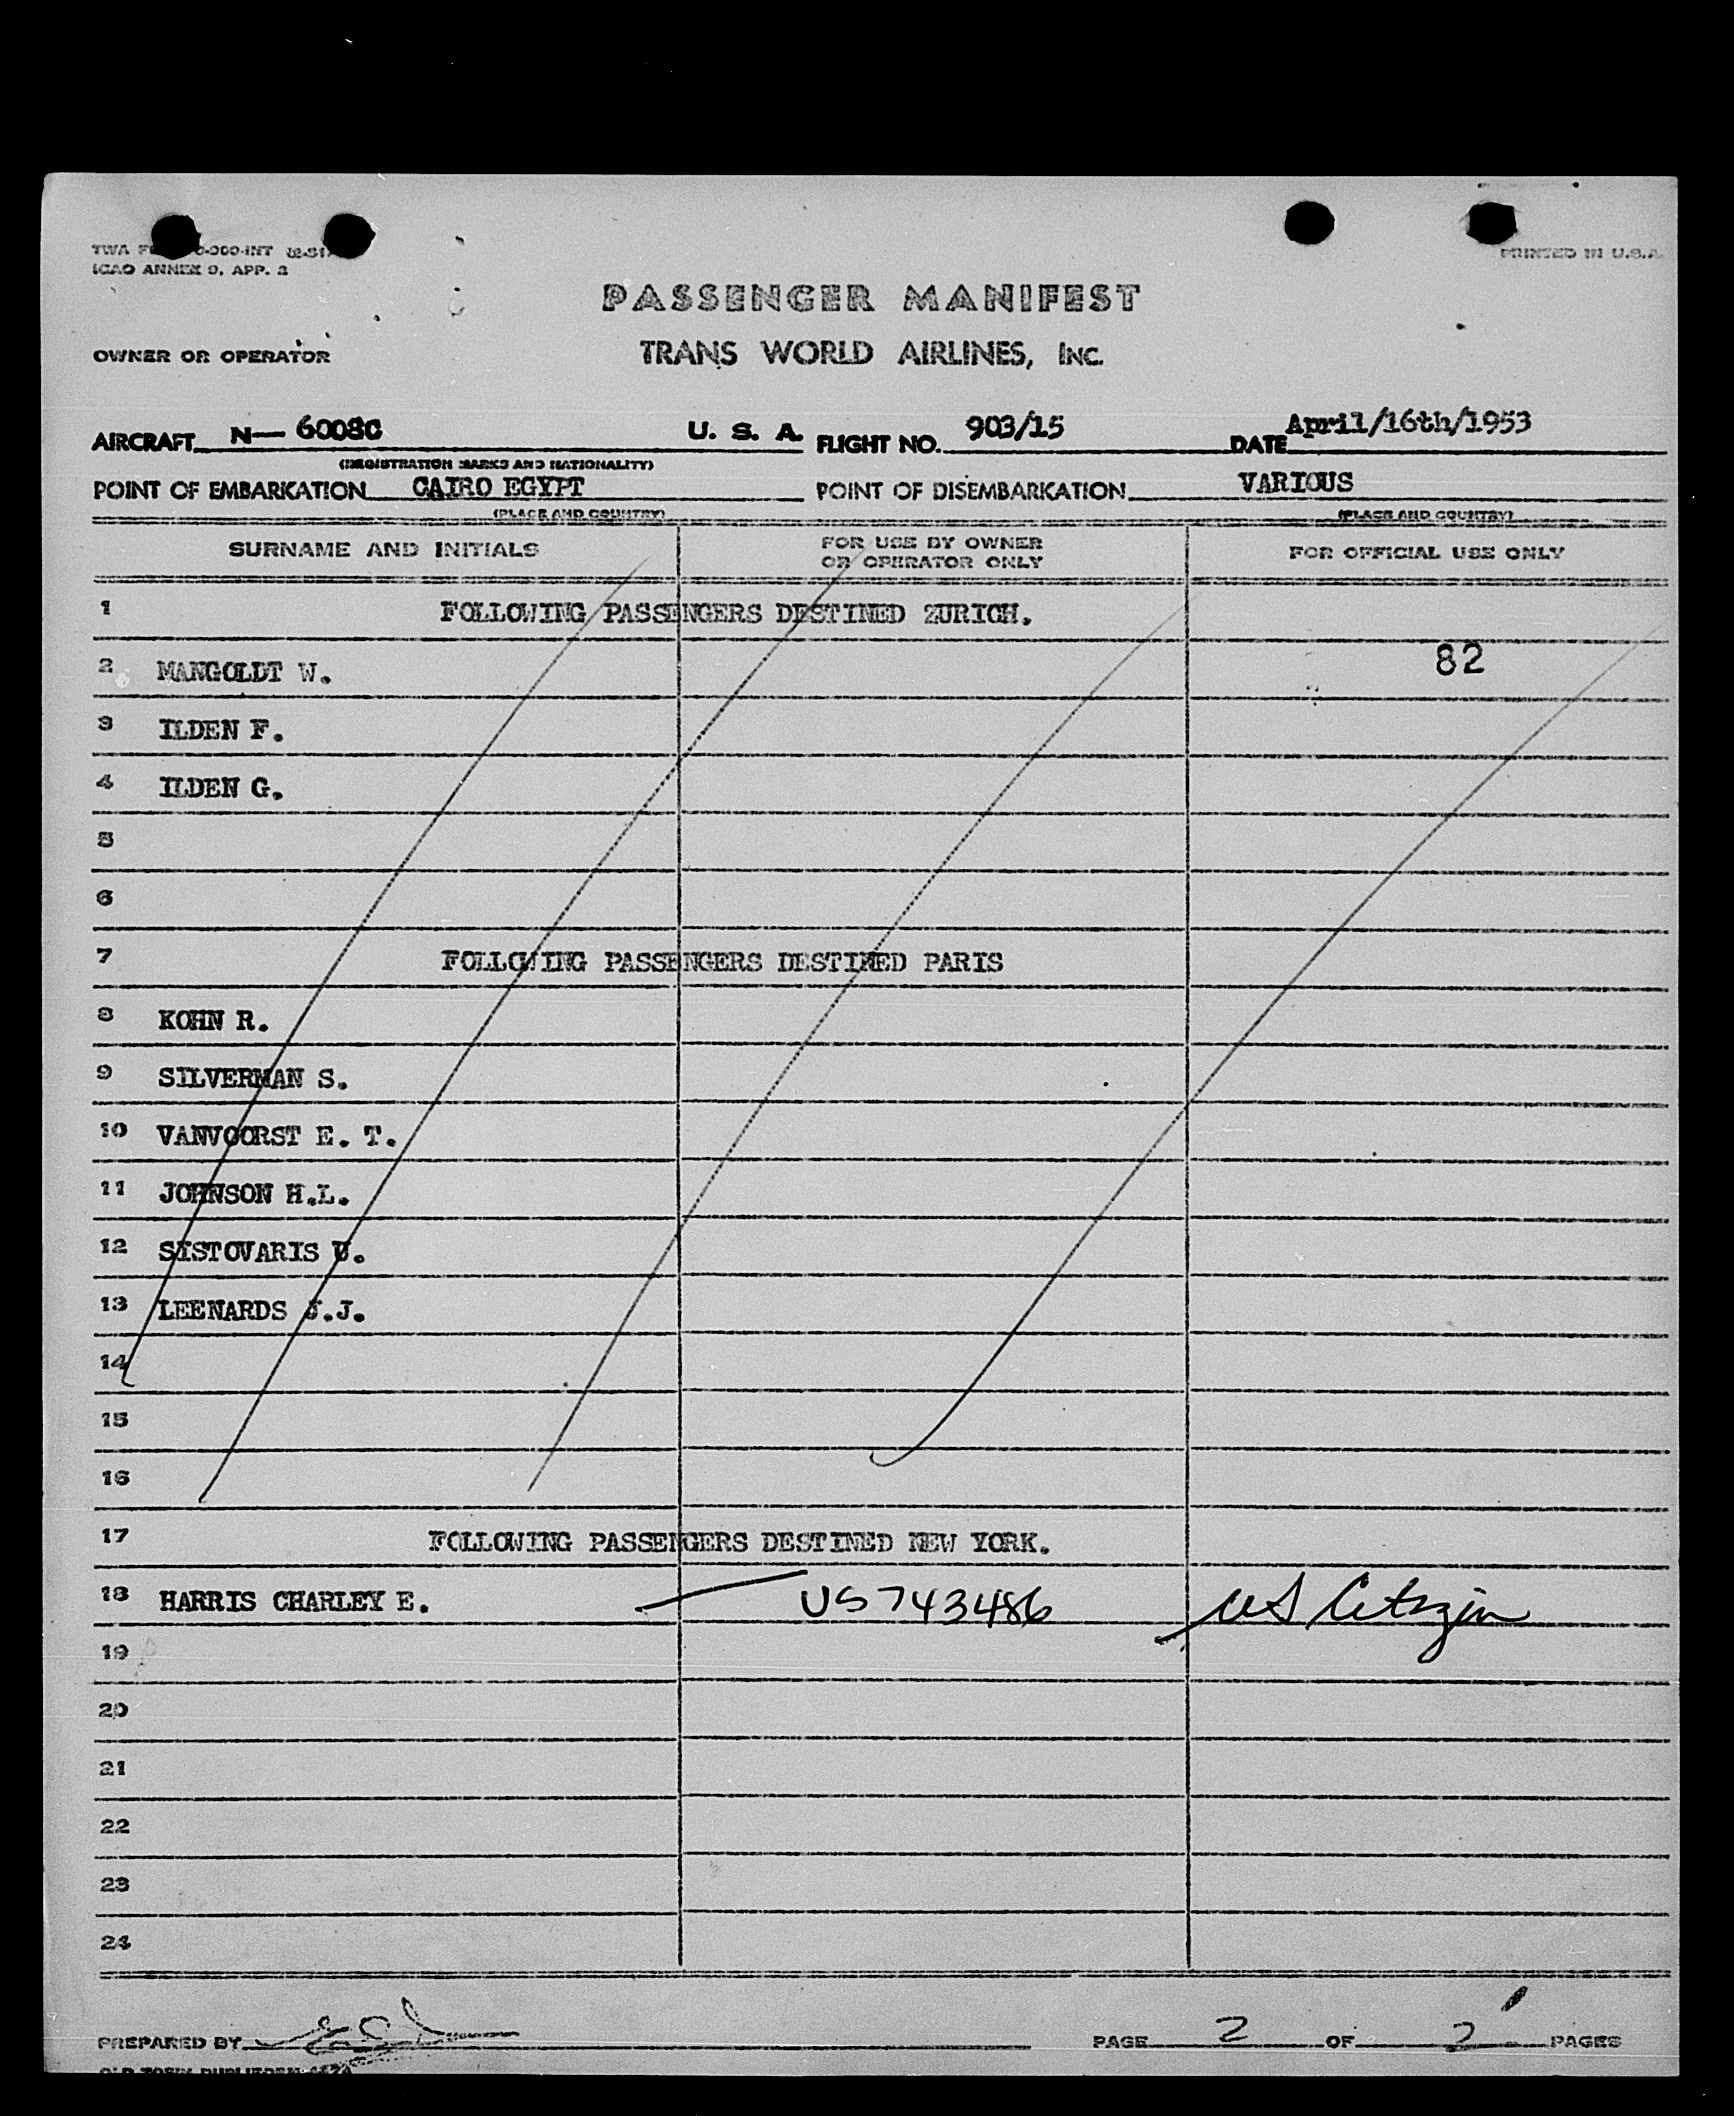 ICAO ANNEX 9, APP. 2
PRINTED IN U.S.A.
PASSENGER MANIFEST
OWNER OR OPERATOR TRANS WORLD AIRLINES, INC.
AIRCRAFT N— 6008C U. S. A. FLIGHT NO. 903/15 DATE April/16th/1953
(REGISTRATION MARKS AND NATIONALITY)
POINT OF EMBARKATION CAIRO EGYPT POINT OF DISEMBARKATION VARIOUS
(PLACE AND COUNTRY) (PLACE AND COUNTRY)
SURNAME AND INITIALS FOR USE BY OWNER OR OPERATOR ONLY FOR OFFICIAL USE ONLY
1 FOLLOWING PASSENGERS DESTINED ZURICH.
2 MANGOLDT W. 82
3 ILDEN F.
4 ILDEN G.
5
6
7 FOLLOWING PASSENGERS DESTINED PARIS
8 KOHN R.
9 SILVERMAN S.
10 VANVOORST E. T.
11 JOHNSON H.L.
12 SISTOVARIS U.
13 LEENARDS J.J.
14
15
16
17 FOLLOWING PASSENGERS DESTINED NEW YORK.
18 HARRIS CHARLEY E. US 743486 US Citizen
19
20
21
22
23
24
PREPARED BY PAGE 2 OF 2 PAGES